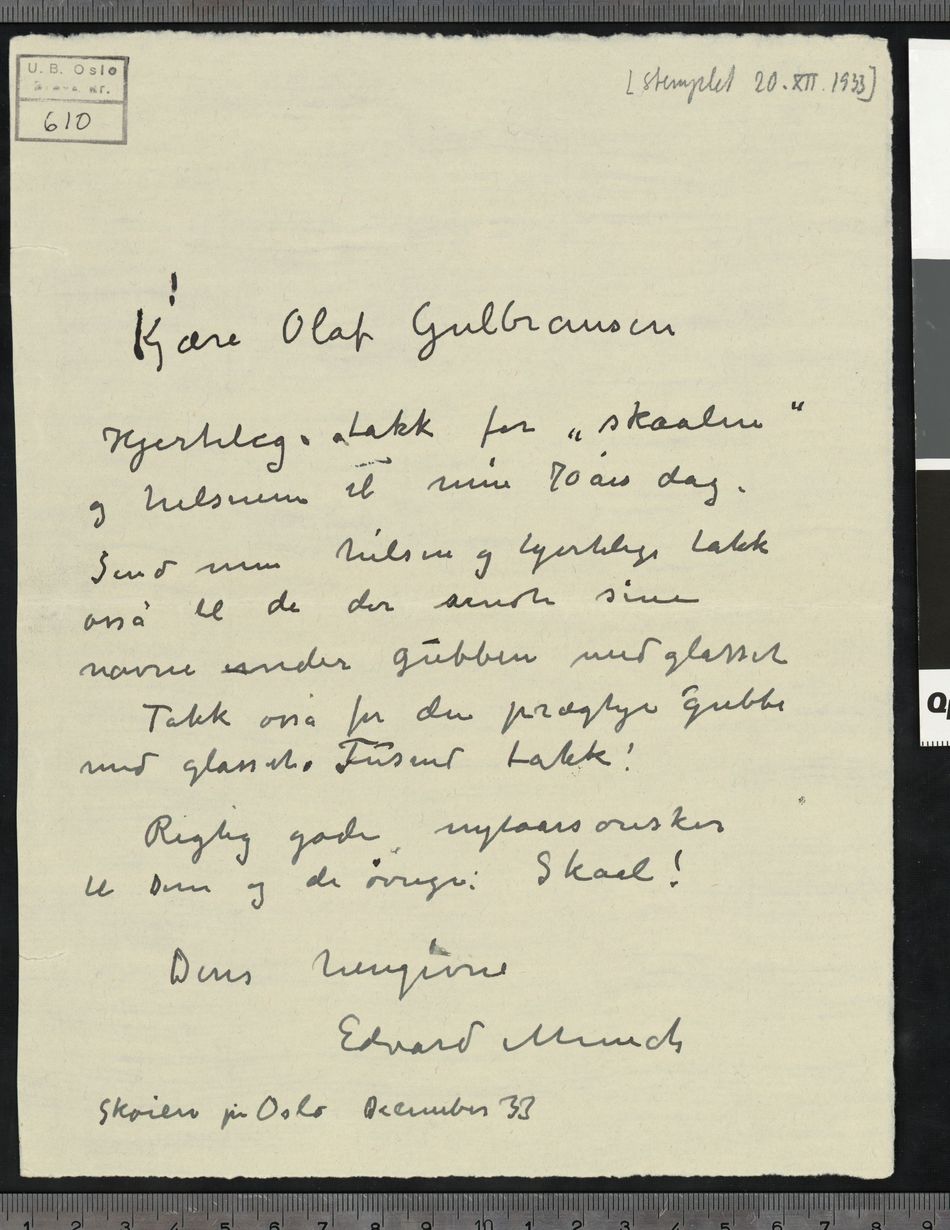 U. B. Oslo
Brevs. nr.
610
[stemplet 20. XII. 1933]
!
Kjære Olaf Gulbransen
Hjertelig takk for „skaalen“
og hilsenen til min 70 års dag.
Send min hilsen og hjertelige takk
også til de der sendte sine
navne under gubben med glasset
Takk også for den prægtige gubbe
med glasset. Tusend takk!
Rigtig gode nytaarsønsker
til Dem og de øvrige: Skaal!
Deres hengivne
Edvard Munch
Skøien pr Oslo December 33